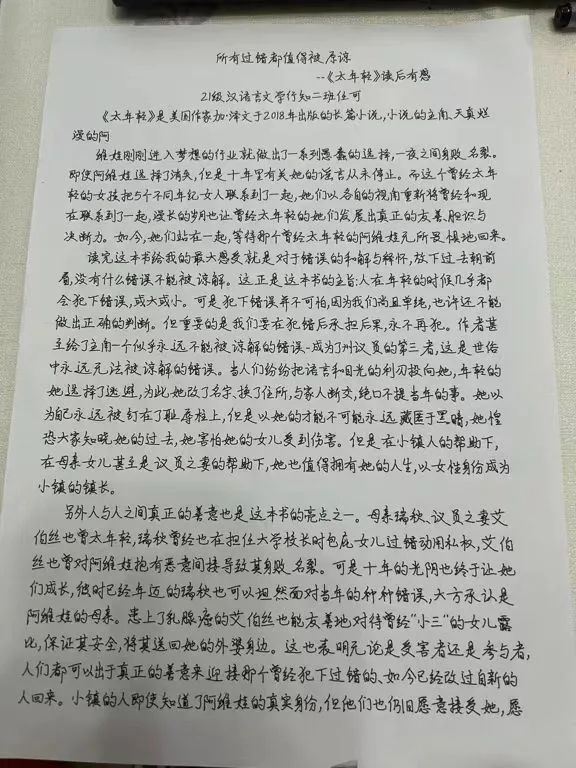 所有过错都值得被原谅
--《太年轻》读后有感
21级汉语言文学行知二班任可
《太年轻》是美国作家加·泽文于2018年出版的长篇小说,小说的主角、天真烂
漫的阿
维娃刚刚进入梦想的行业就做出了一系列愚蠢的选择,一夜之间身败名裂。
即使阿维娃选择了消失,但是十年里有关她的谎言从未停止。而这个曾经太年
轻的女孩把5个不同年纪女人联系到了一起,她们以各自的视角重新将曾经和现
在联系到了一起,漫长的岁月也让曾经太年轻的她们发展出真正的友善、胆识与
决断力。如今,她们站在一起,等待那个曾经太年轻的阿维娃无所畏惧地回来。
读完这本书给我的最大感受就是对于错误的和解与释怀,放下过去朝前
看,没有什么错误不能被谅解。这正是这本书的主旨:人在年轻的时候几乎都
会犯下错误,或大或小。可是犯下错误并不可怕,因为我们尚且单纯,也许还不能
做出正确的判断。但重要的是我们要在犯错后承担后果,永不再犯。作者甚
至给了主角一个似乎永远不能被谅解的错误-成为了州议员的第三者,这是世俗
中永远无法被谅解的错误。当人们纷纷把语言和目光的利刃投向她,年轻的
她选择了逃避,为此她改了名字、换了住所,与家人断交,绝口不提当年的事。她以
为自己永远被钉在了耻辱柱上,但是以她的才能不可能永远藏匿于黑暗,她惶
恐大家知晓她的过去,她害怕她的女儿受到伤害。但是在小镇人的帮助下,
在母亲女儿甚至是议员之妻的帮助下,她也值得拥有她的人生,以女性身份成为
小镇的镇长。
另外人与人之间真正的善意也是这本书的亮点之一。母亲瑞秋、议员之妻艾
伯丝也曾太年轻,瑞秋曾经也在担任大学校长时包庇女儿过错动用私权,艾伯
丝也曾对阿维娃抱有恶意间接导致其身败名裂。可是十年的光阴也终于让她
们成长,彼时已经年迈的瑞秋也可以坦然面对当年的种种错误,大方承认是
阿维娃的母亲。患上了乳腺癌的艾伯丝也能友善地对待曾经“小三”的女儿露
比,保证其安全,将其送回她的外婆身边。这也表明无论是受害者还是参与者,
人们都可以出于真正的善意来迎接那个曾经犯下过错的、如今已经改过自新的
人回来。小镇的人即使知道了阿维娃的真实身份,但他们也仍旧愿意接受她,愿